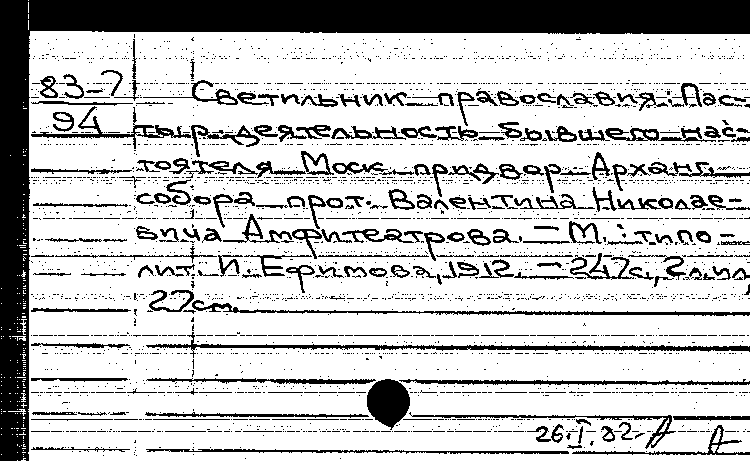 83-7
94
Светильник православия: Пас-
тыр. деятельность бывшего нас-
тоятеля Моск. придвор. Арханг.
собора прот. Валентина Николае-
вича Амфитеатрова. — М.: типо-
лит. И. Ефимова, 1912. — 247с., 2л.ил,
27см.
26.I.82